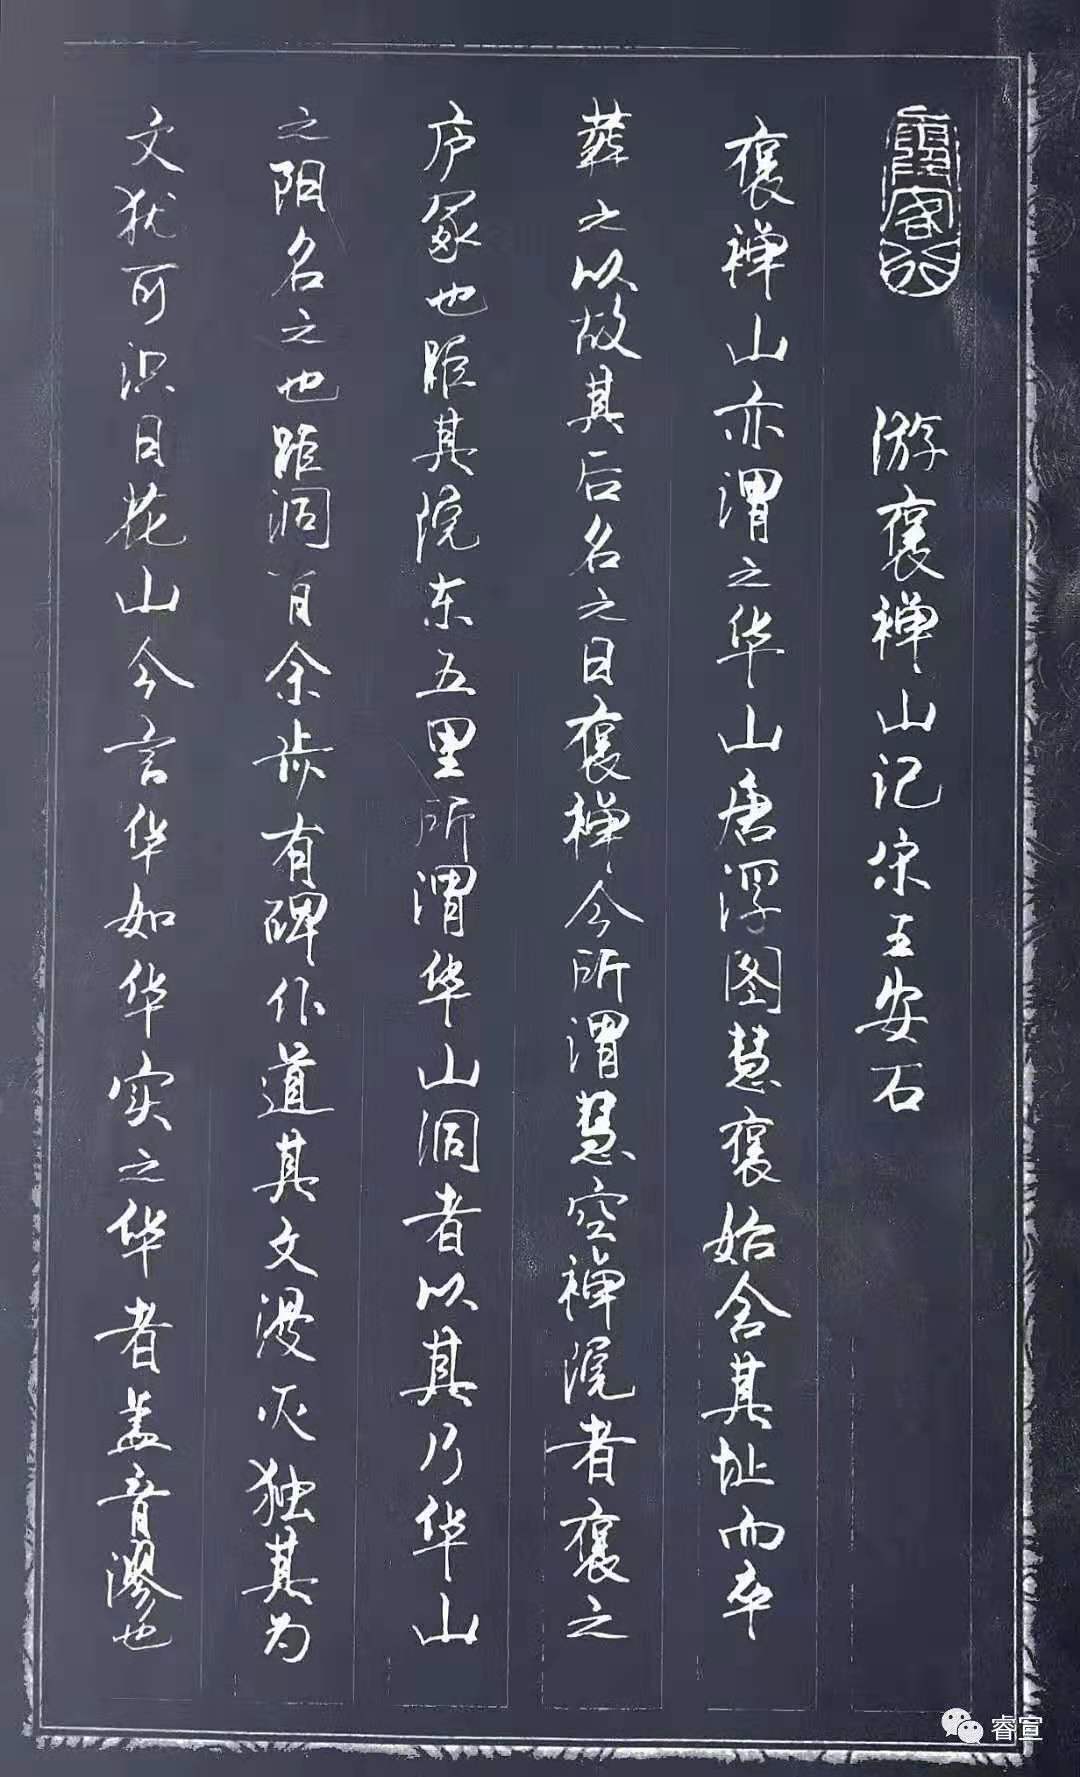 游褒禅山记宋王安石
褒禅山亦谓之华山唐浮图慧褒始舍其址而卒
葬之以故其后名之曰褒禅今所谓慧空禅院者褒之
庐冢也距其院东五里所谓华山洞者以其乃华山
之阳名之也距洞百余步有碑仆道其文漫灭独其为
文犹可识曰花山今言华如华实之华者盖音谬也
睿宣